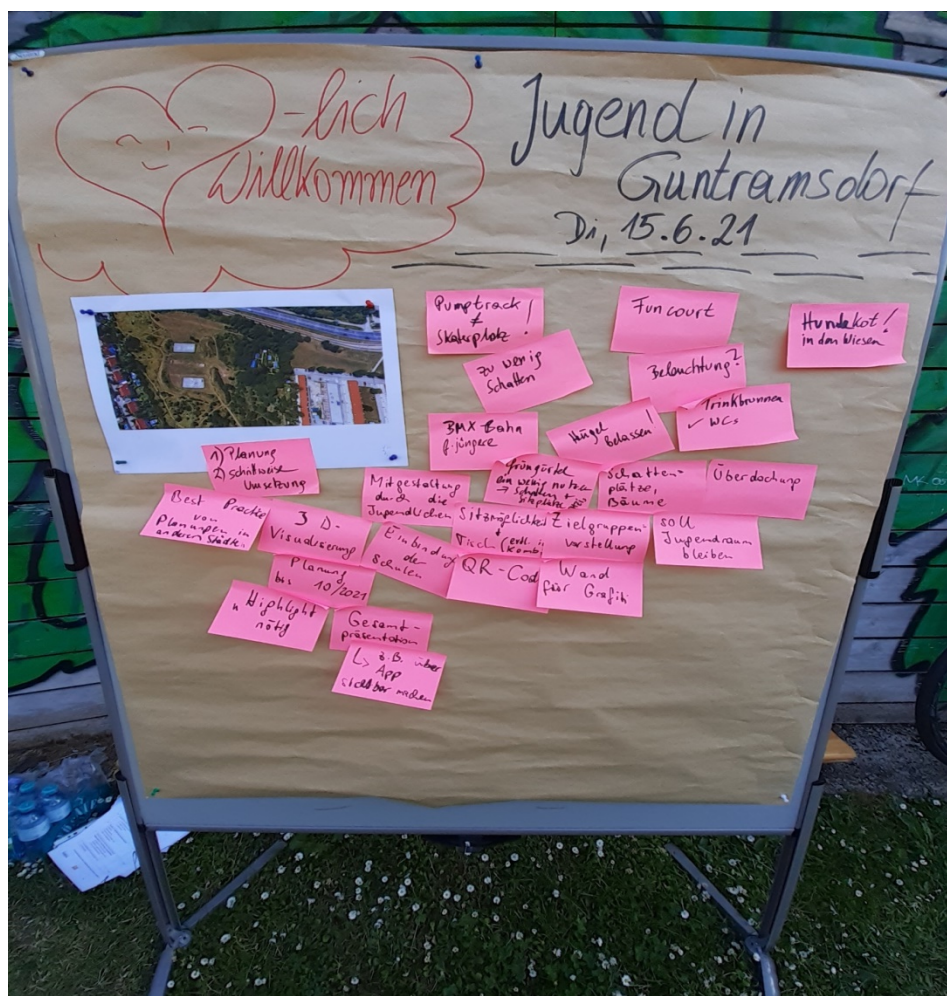 -lich
Willkommen
Jugend in
Guntramsdorf
Di, 15.6.21
Pumptrack
≠
Skaterplatz!
zu wenig
Schatten
Funcourt
Beleuchtung?
Hundekot!
in den Wiesen
BMX-Bahn
f. jüngere
Hügel
Belassen!
Trinkbrunnen
✓ WCs
1) Planung
2) schrittweise
Umsetzung
Mitgestaltung
durch die
Jugendlichen
Grüngürtel
ein wenig nutzen
→ Schatten +
Sitzplätze
Schatten-
plätze,
Bäume
Überdachung
Best Practice
von
Planungen in
anderen Städten
3 D-
Visualisierung
Einbindung
der
Schulen
Sitzmöglichkeit
+
Tisch (evtl. in
Kombi
Zielgruppen-
vorstellung
soll
Jugendraum
bleiben
Planung
bis
10/2021
QR-Code
Wand
für Grafiti
Highlight
nötig
Gesamt-
präsentation
↳ z.B. über
App
sichtbar machen